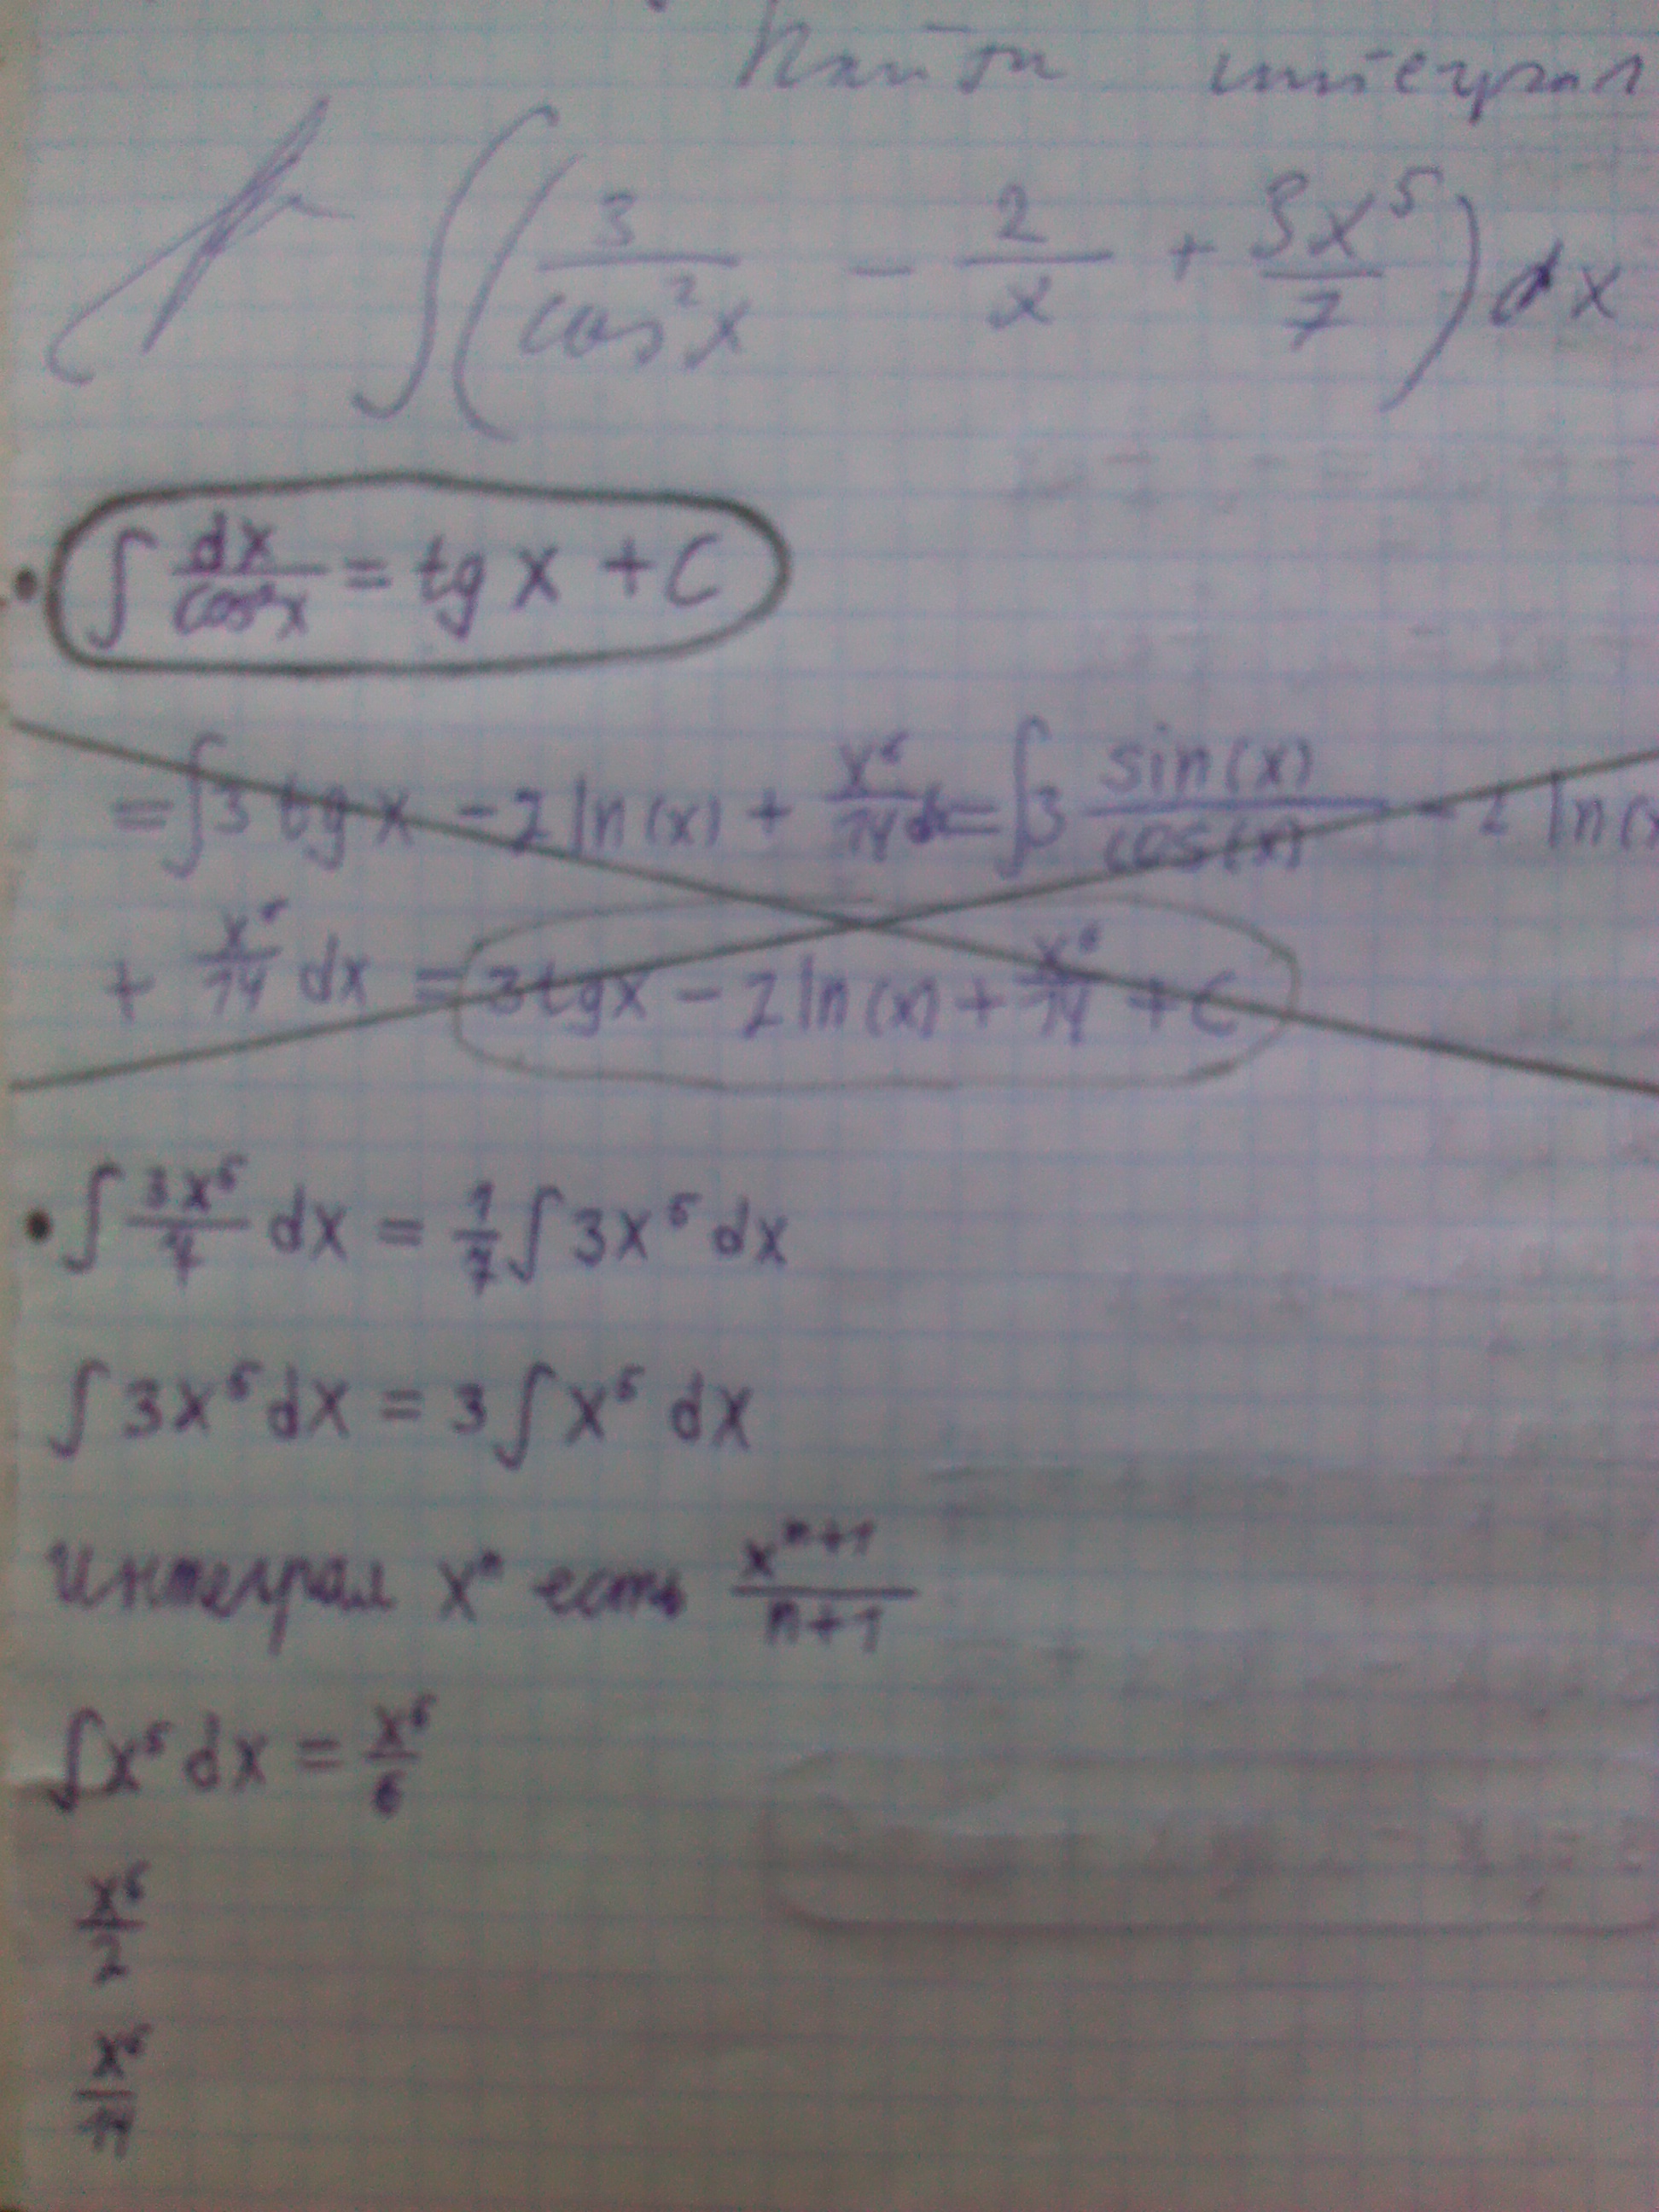 Найти интеграл
∫(3/cos²x − 2/x + 3x⁵/7)dx
• ∫ dx/cos²x = tg x + C
= ∫3 tg x − 2 ln(x) + x⁶/14 dx = ∫3 sin(x)/cos(x) − 2 ln(x
+ x⁶/14 dx = 3tgx − 2 ln(x) + x⁶/14 + C
• ∫ 3x⁵/7 dx = 1/7 ∫ 3x⁵ dx
∫ 3x⁵ dx = 3 ∫ x⁵ dx
Интеграл xⁿ есть xⁿ⁺¹/n+1
∫x⁵ dx = x⁶/6
x⁶/2
x⁶/14